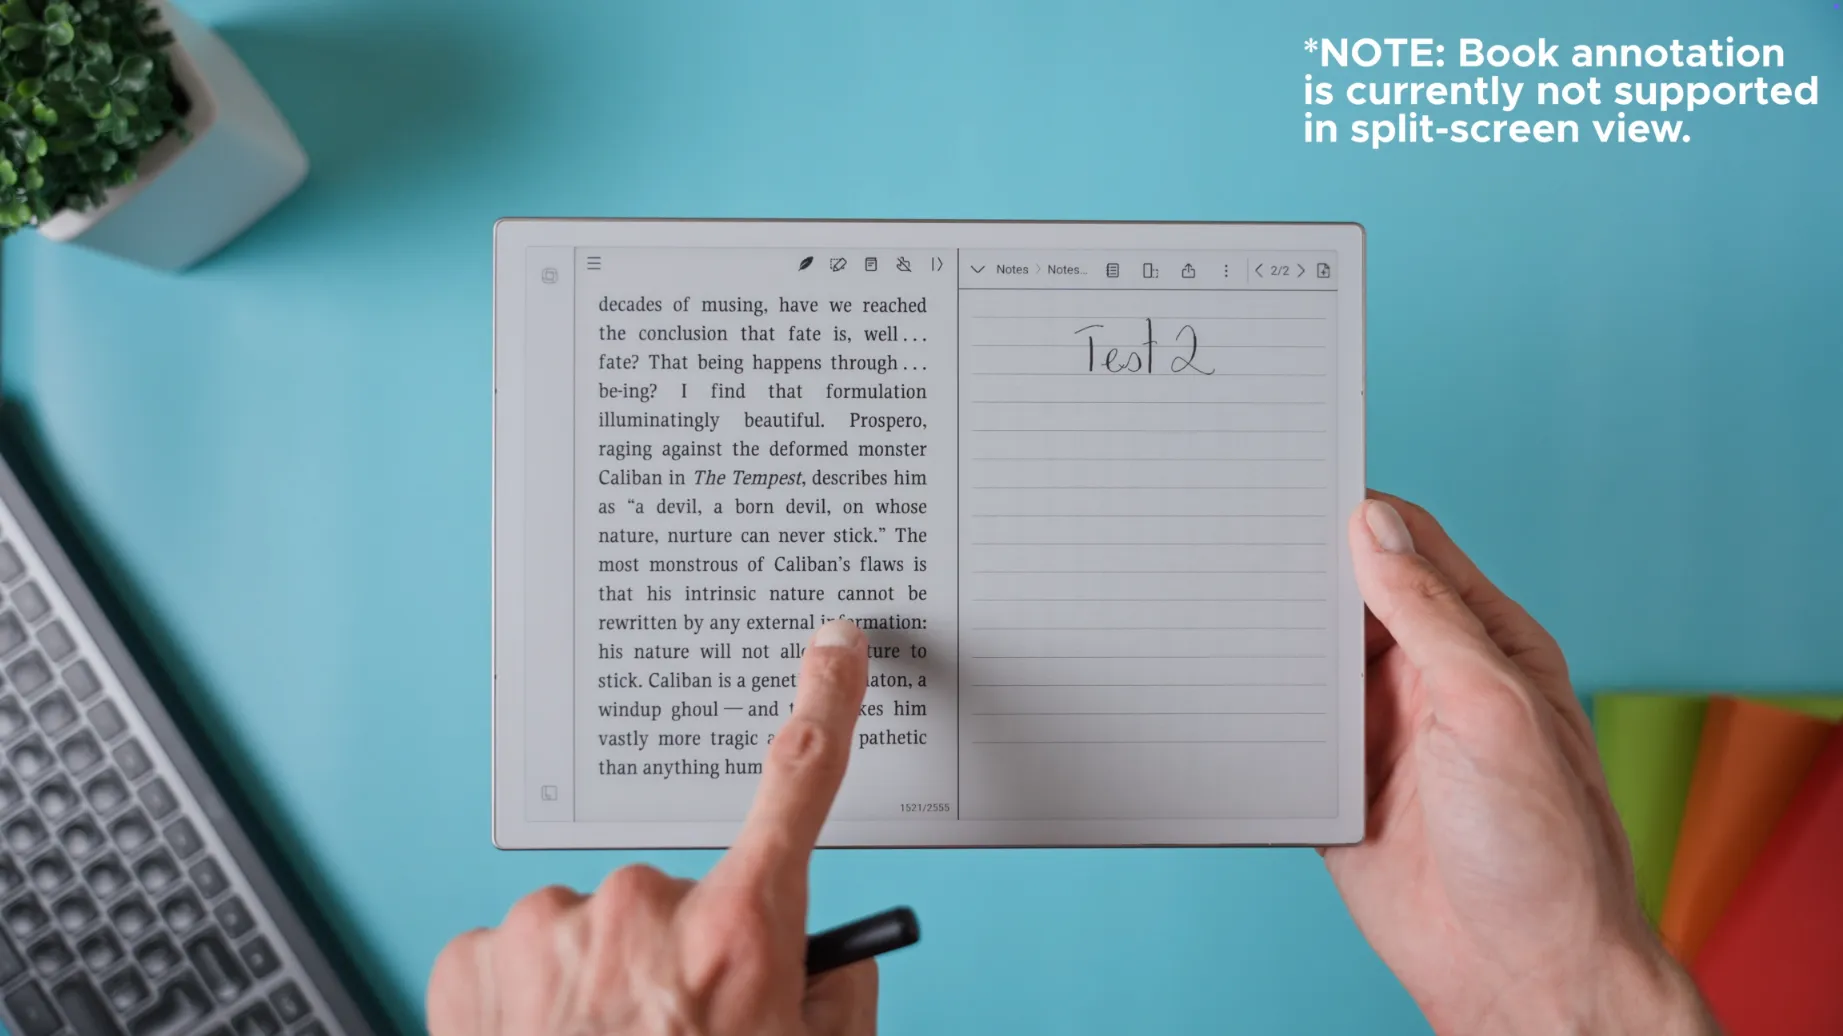 *NOTE: Book annotation
is currently not supported
in split-screen view.
decades of musing, have we reached
the conclusion that fate is, well . . .
fate? That being happens through . . .
be-ing? I find that formulation
illuminatingly beautiful. Prospero,
raging against the deformed monster
Caliban in The Tempest, describes him
as “a devil, a born devil, on whose
nature, nurture can never stick.” The
most monstrous of Caliban’s flaws is
that his intrinsic nature cannot be
rewritten by any external information:
his nature will not to
stick. Caliban is a a
windup ghoul — and him
vastly more tragic pathetic
than anything
1521/2555
Notes > Notes...
2/2
Test 2